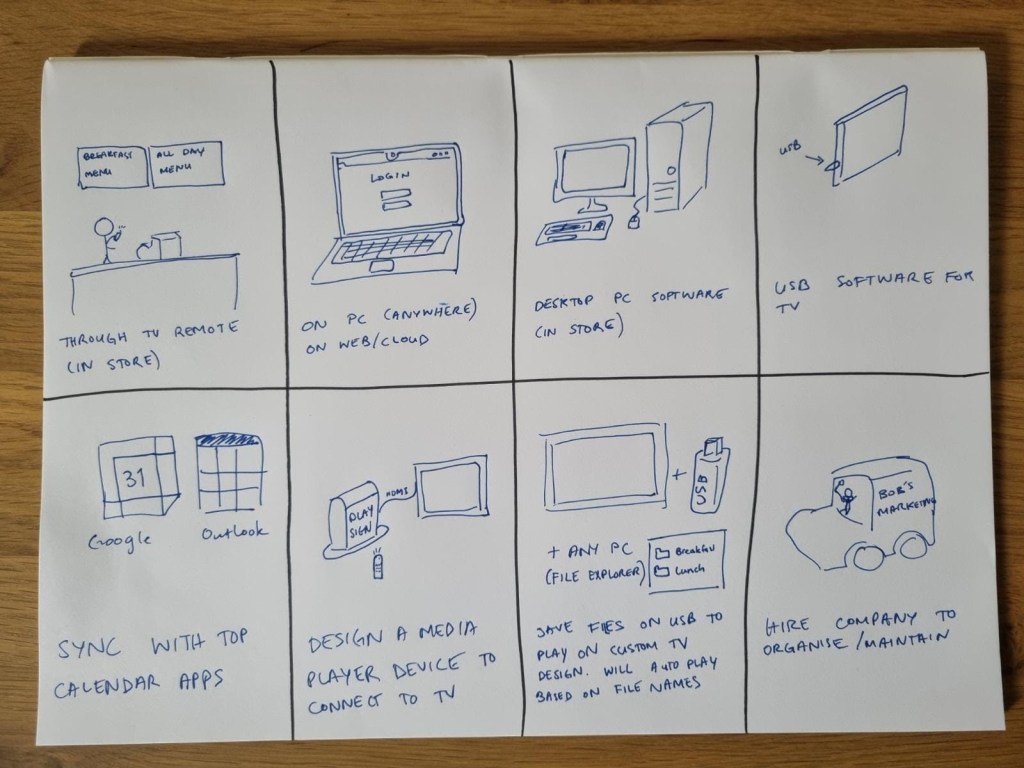 BREAKFAST
MENU
ALL DAY
MENU
THROUGH TV REMOTE
(IN STORE)
LOGIN
ON PC (ANYWHERE)
ON WEB/CLOUD
DESKTOP PC SOFTWARE
(IN STORE)
USB
USB SOFTWARE FOR
TV
31
Google
Outlook
SYNC WITH TOP
CALENDAR APPS
PLAY
SIGN
HDMI
DESIGN A MEDIA
PLAYER DEVICE TO
CONNECT TO TV
+
USB
+ ANY PC
(FILE EXPLORER)
Lunch
SAVE FILES ON USB TO
PLAY ON CUSTOM TV
DESIGN. WILL AUTO PLAY
BASED ON FILE NAMES
BOB'S
MARKETING
HIRE COMPANY TO
ORGANISE/MAINTAIN